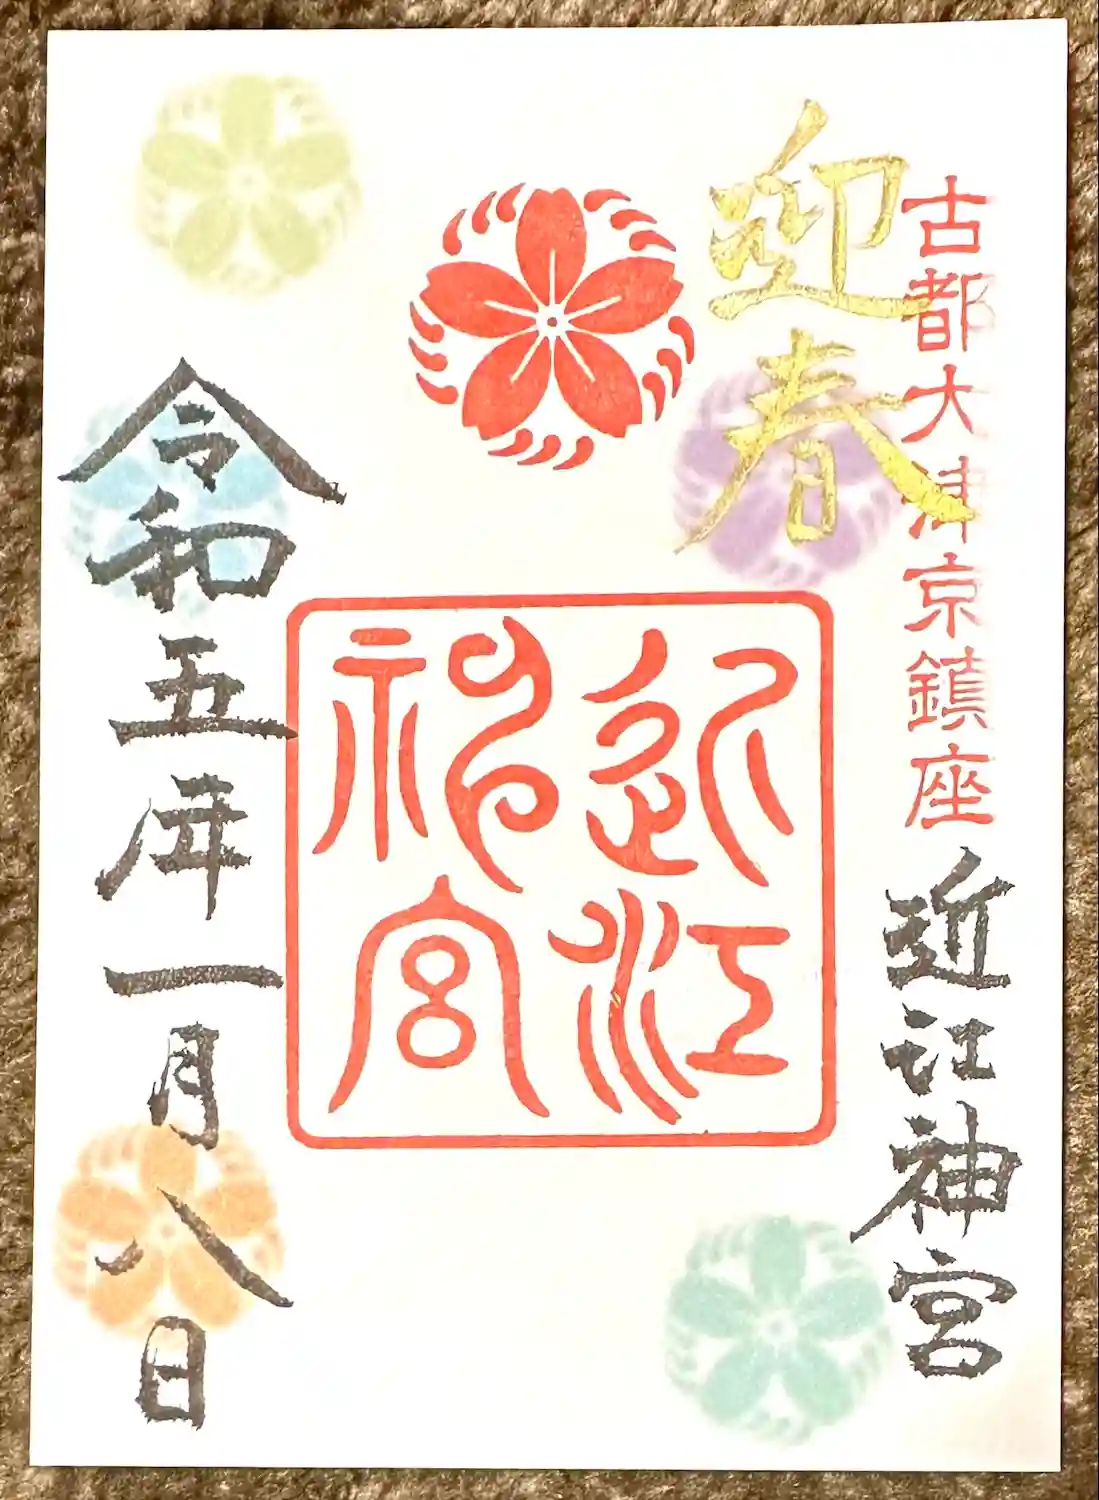 古都大津京鎮座
近江神宮
迎春
近江神宮
令和五年一月八日